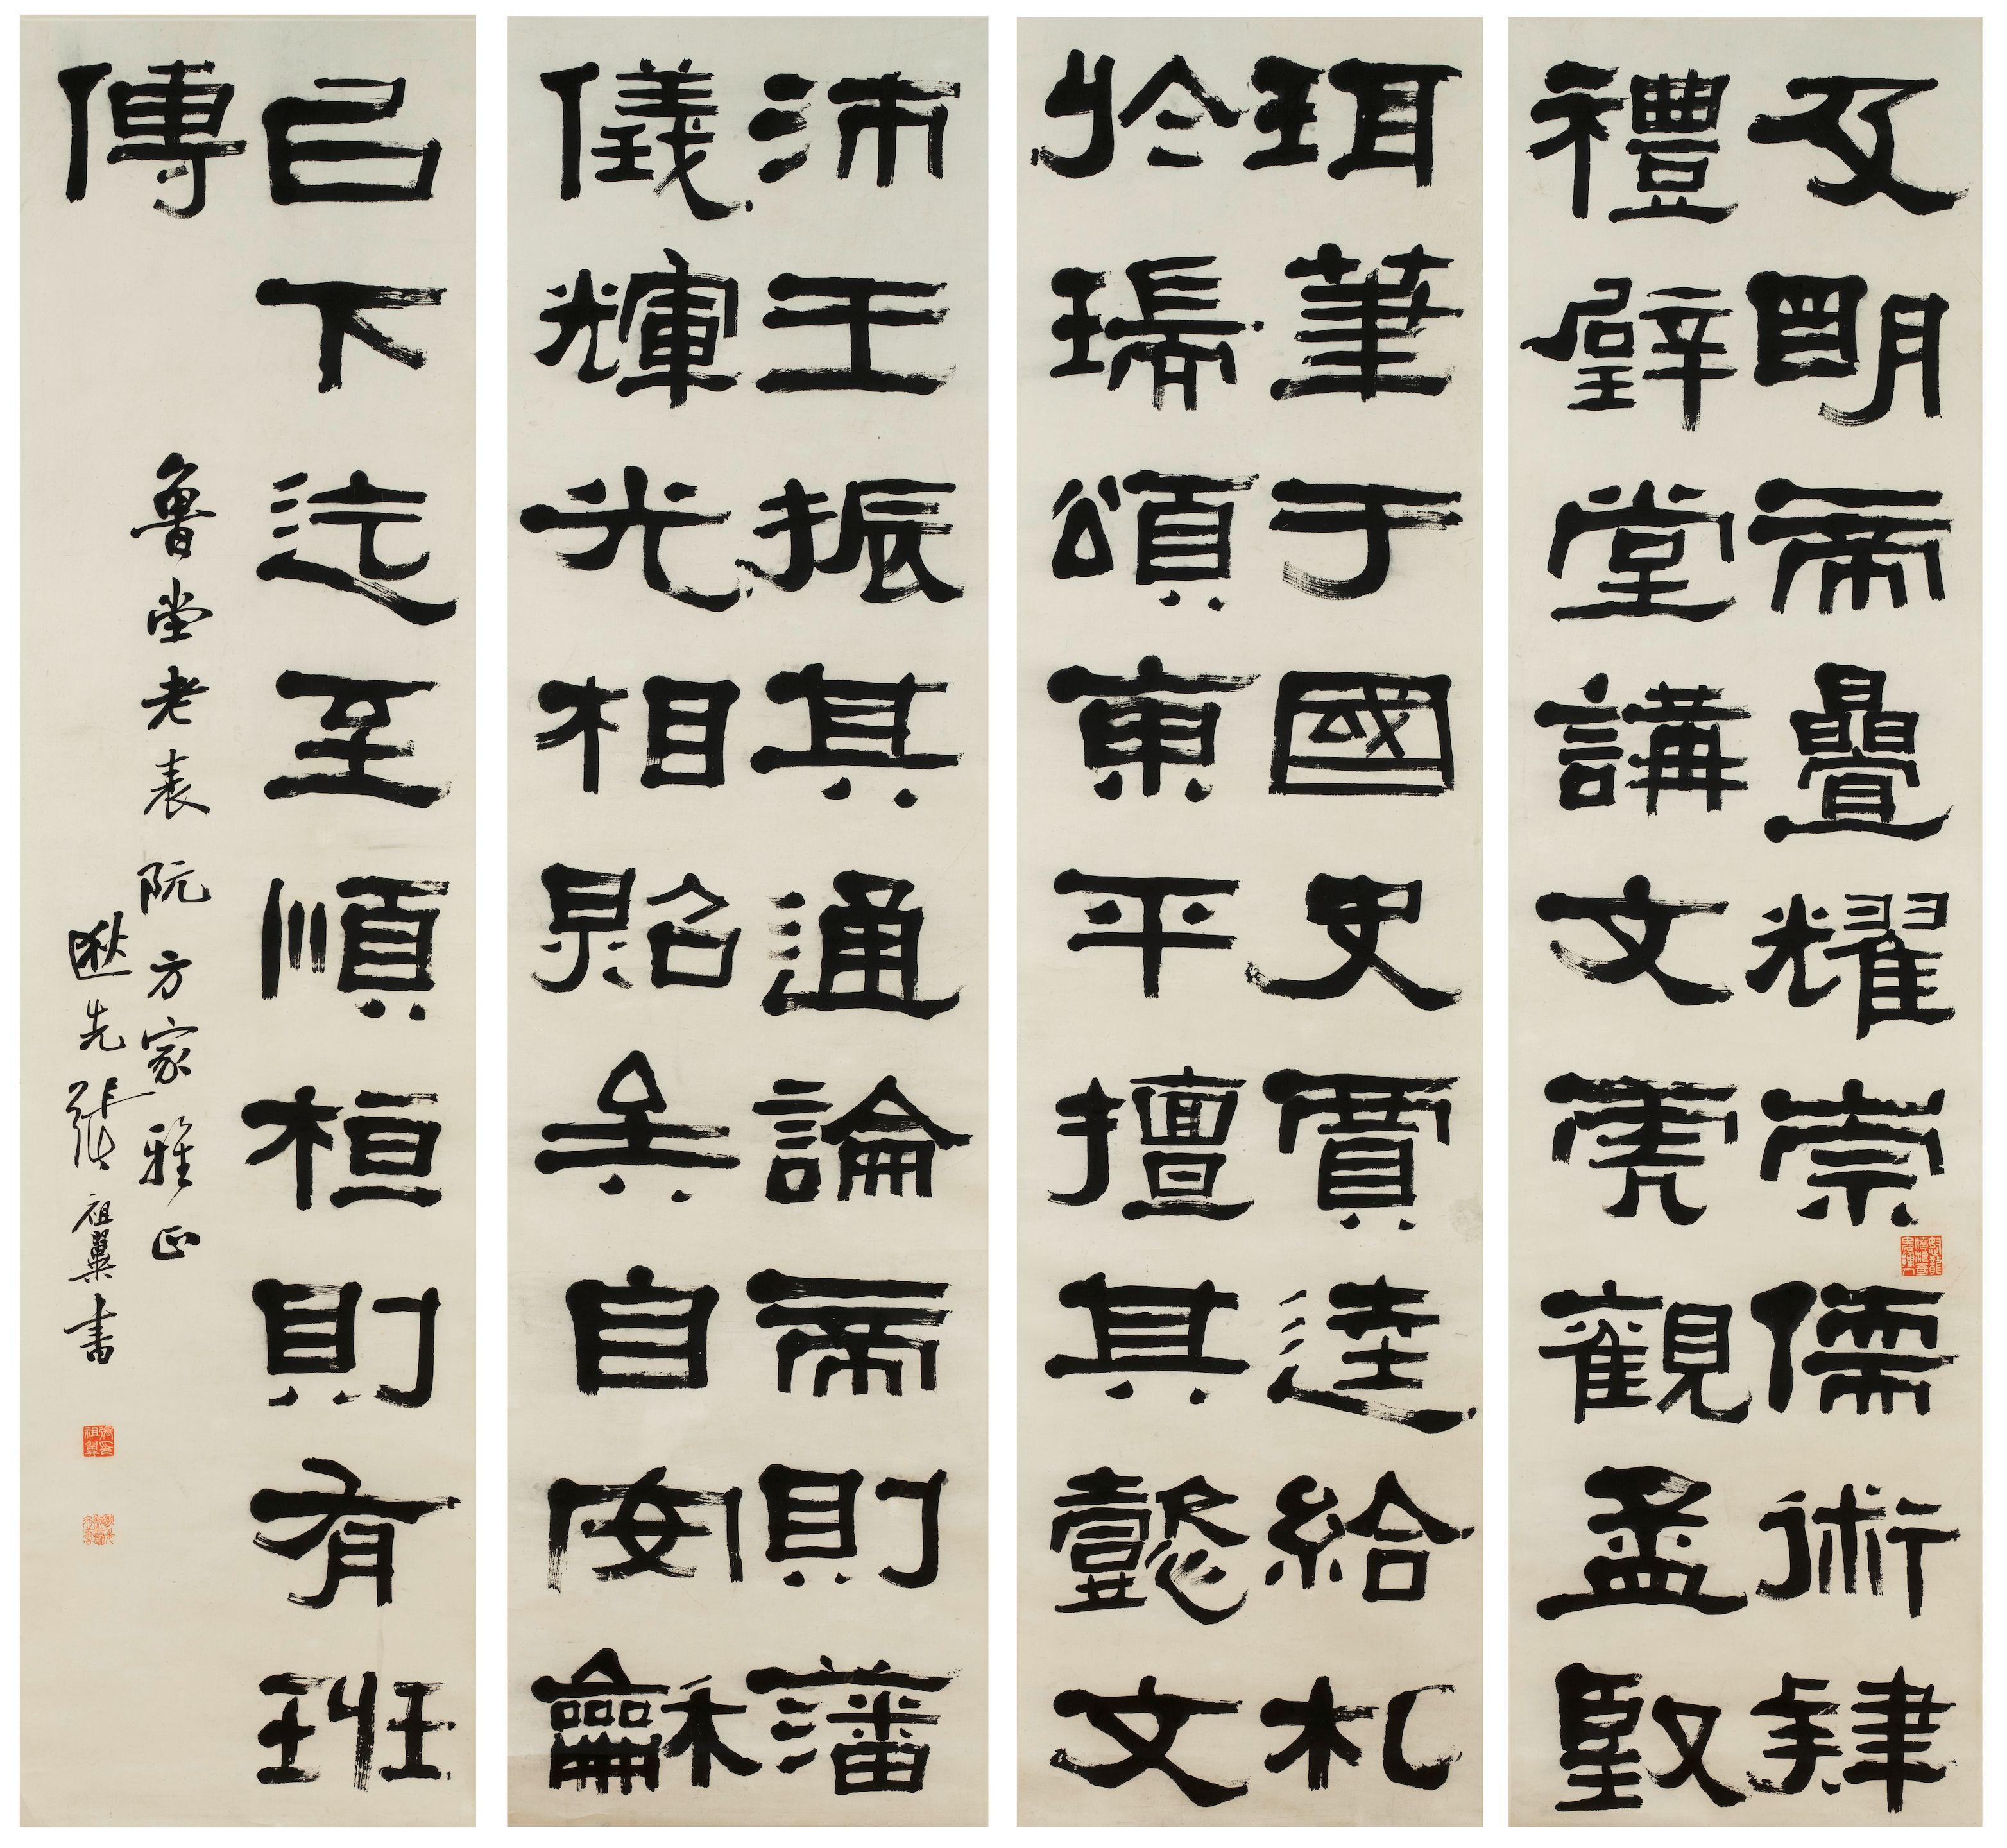 及明帝疊耀崇儒術肄
禮璧堂講文虎觀孟堅
珥筆于國史賈逵給札
於瑞頌東平擅其懿文
沛王振其通論帝則藩
儀輝光相照矣自安龢
已下迄至順桓則有班
傅
魯堂老表阮方家雅正
逖先張祖翼書